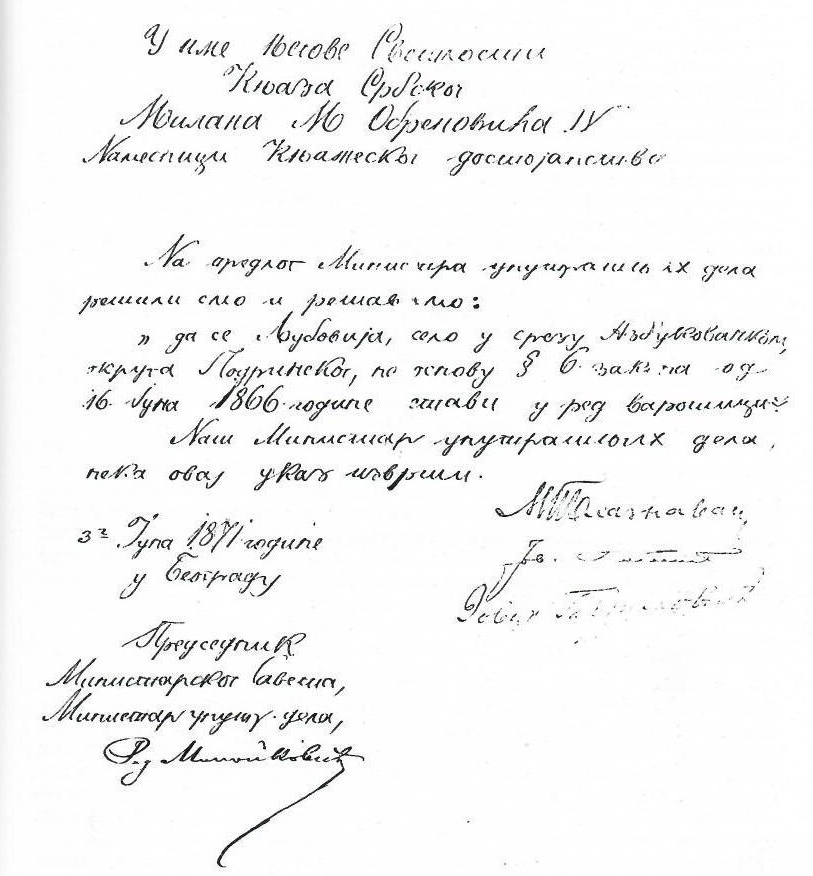 У име Његове Светлости
Књаза Србског
Милана М Обреновића IV
Намесници Књажеског достојанства
На предлог Министра унутрашњих дела
решили смо и решавамо:
„ да се Љубовија, село у срезу Азбуковачком,
округа Подринског, по основу § 6. закона од
16. Јуна 1866. године стави у ред варошица."
Наш Министар унутрашњих дела,
нека овај указ изврши.
3г Јуна 1871 године
у Београду
М П Блазнавац
Јов. Ристић
Јован Гавриловић
Председник
Министарског Савета,
Министар унутр. дела,
Рад Милојковић